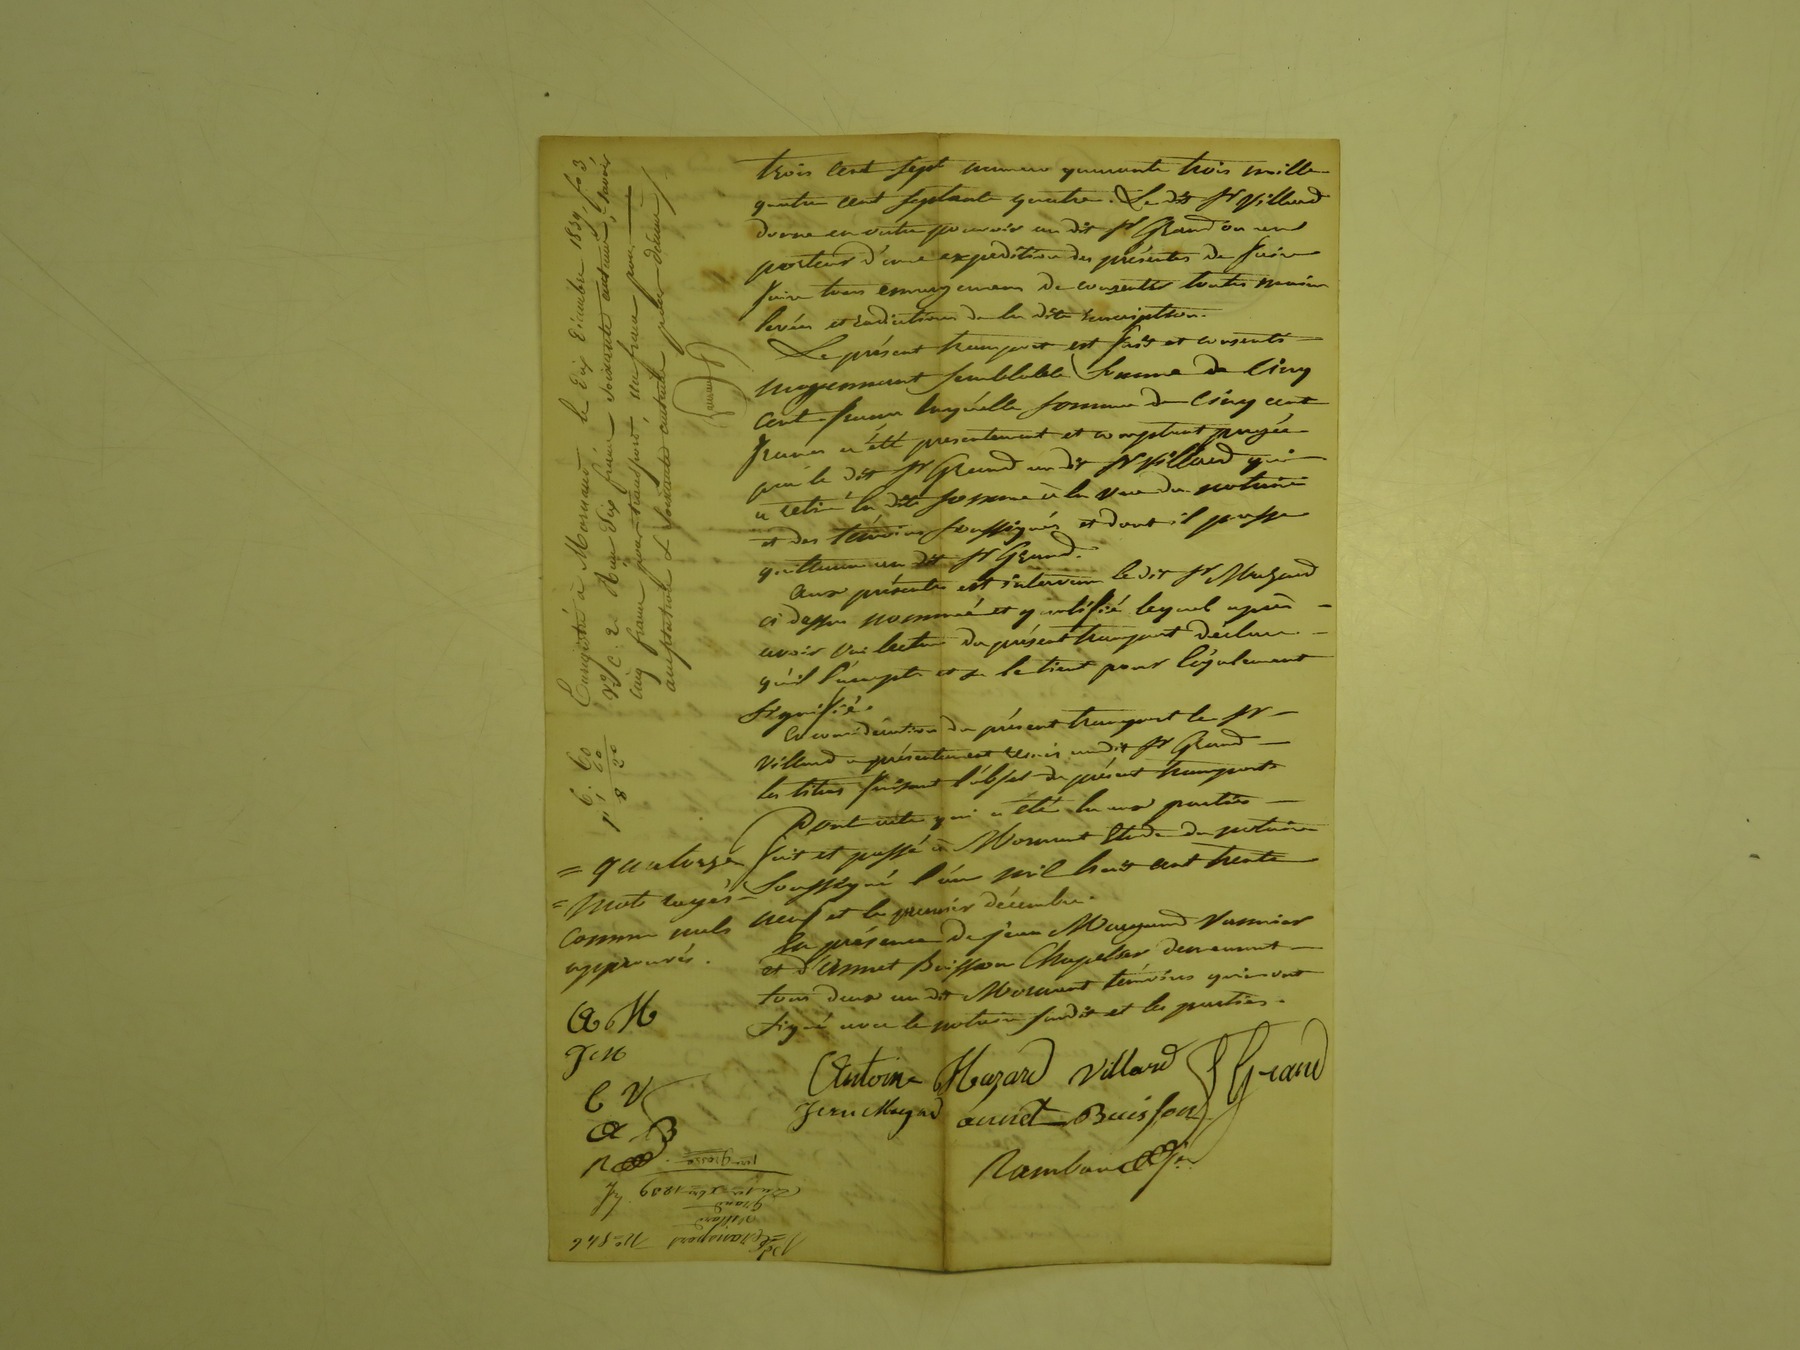 trois cent sept numero quarante trois mille
quatre cent septante quatre. Le dit Sr Villard
donne en outre pouvoir au dit Sr Grand ou au
porteur d'une expédition des présentes de faire
faire tous emargemens de consentir toutes main
levées et radiations de la dite inscription.
Le présent transport est fait et consenti
moyennant semblable somme de Cinq
cent francs laquelle somme de Cinq cent
francs a été presentement et comptant payée
par le dit Sr Grand au dit Sr Villard qui
a retiré la dite somme à la vue du notaire
et des témoins soussignés et dont il passe
quittance au dit Sr Grand.
Aux présentes est intervenu le dit Sr Mazard
ci dessus nommé et qualifié lequel après
avoir eu lecture du présent transport déclare
qu'il l'accepte et se le tient pour légalement
signifié.
En considération du présent transport le Sr
Villard a présentement remis au dit Sr Grand
les titres faisant l'objet du présent transport
Dont acte qui a été lu aux parties
fait et passé à Mornant Etude du notaire
soussigné l'an mil huit cent trente
neuf et le premier décembre.
En présence de Jean Mazard Vannier
et d'Annet Buisson Chapelier demeurant
tous deux au dit Mornant témoins qui ont
signé avec le notaire susdit et les parties.
Antoine Mazard Villard Grand
Jean Mazard annet Buisson
= quatorze
= mots rayés
comme nuls
approuvés.
A M
J M
C V
A B
R
Enregistré à Mornant le dix décembre 1839 fo 3
Vo C. 2 Reçu dix francs soixante centimes, savoir
cinq francs pour transport, un franc pour
acceptation & soixante centimes pour décime
No 846
Transport
Villard
Grand
Du 1er Xbre 1839